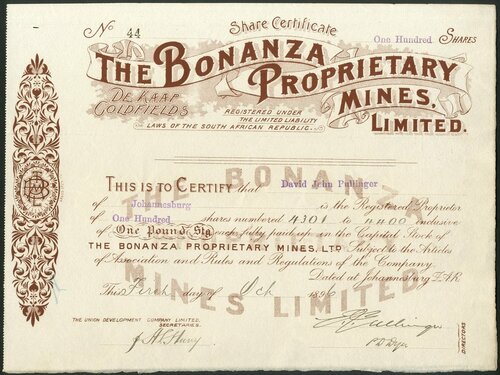 Share Certificate
No 44
One Hundred SHARES
THE BONANZA
PROPRIETARY
MINES,
LIMITED.
DE KAAP
GOLDFIELDS
REGISTERED UNDER
THE LIMITED LIABILITY
LAWS OF THE SOUTH AFRICAN REPUBLIC.
THE BONANZA
MINES LIMITED
THIS IS TO CERTIFY that David John Pullinger
of Johannesburg is the Registered Proprietor
of One Hundred shares numbered 4301 to 4400 inclusive
of One Pound Stg each fully paid up in the Capital Stock of
THE BONANZA PROPRIETARY MINES, LTD Subject to the Articles
of Association and Rules and Regulations of the Company
Dated at Johannesburg Z.A.R.
This First day of Oct 1896
THE UNION DEVELOPMENT COMPANY LIMITED.
SECRETARIES.
DIRECTORS